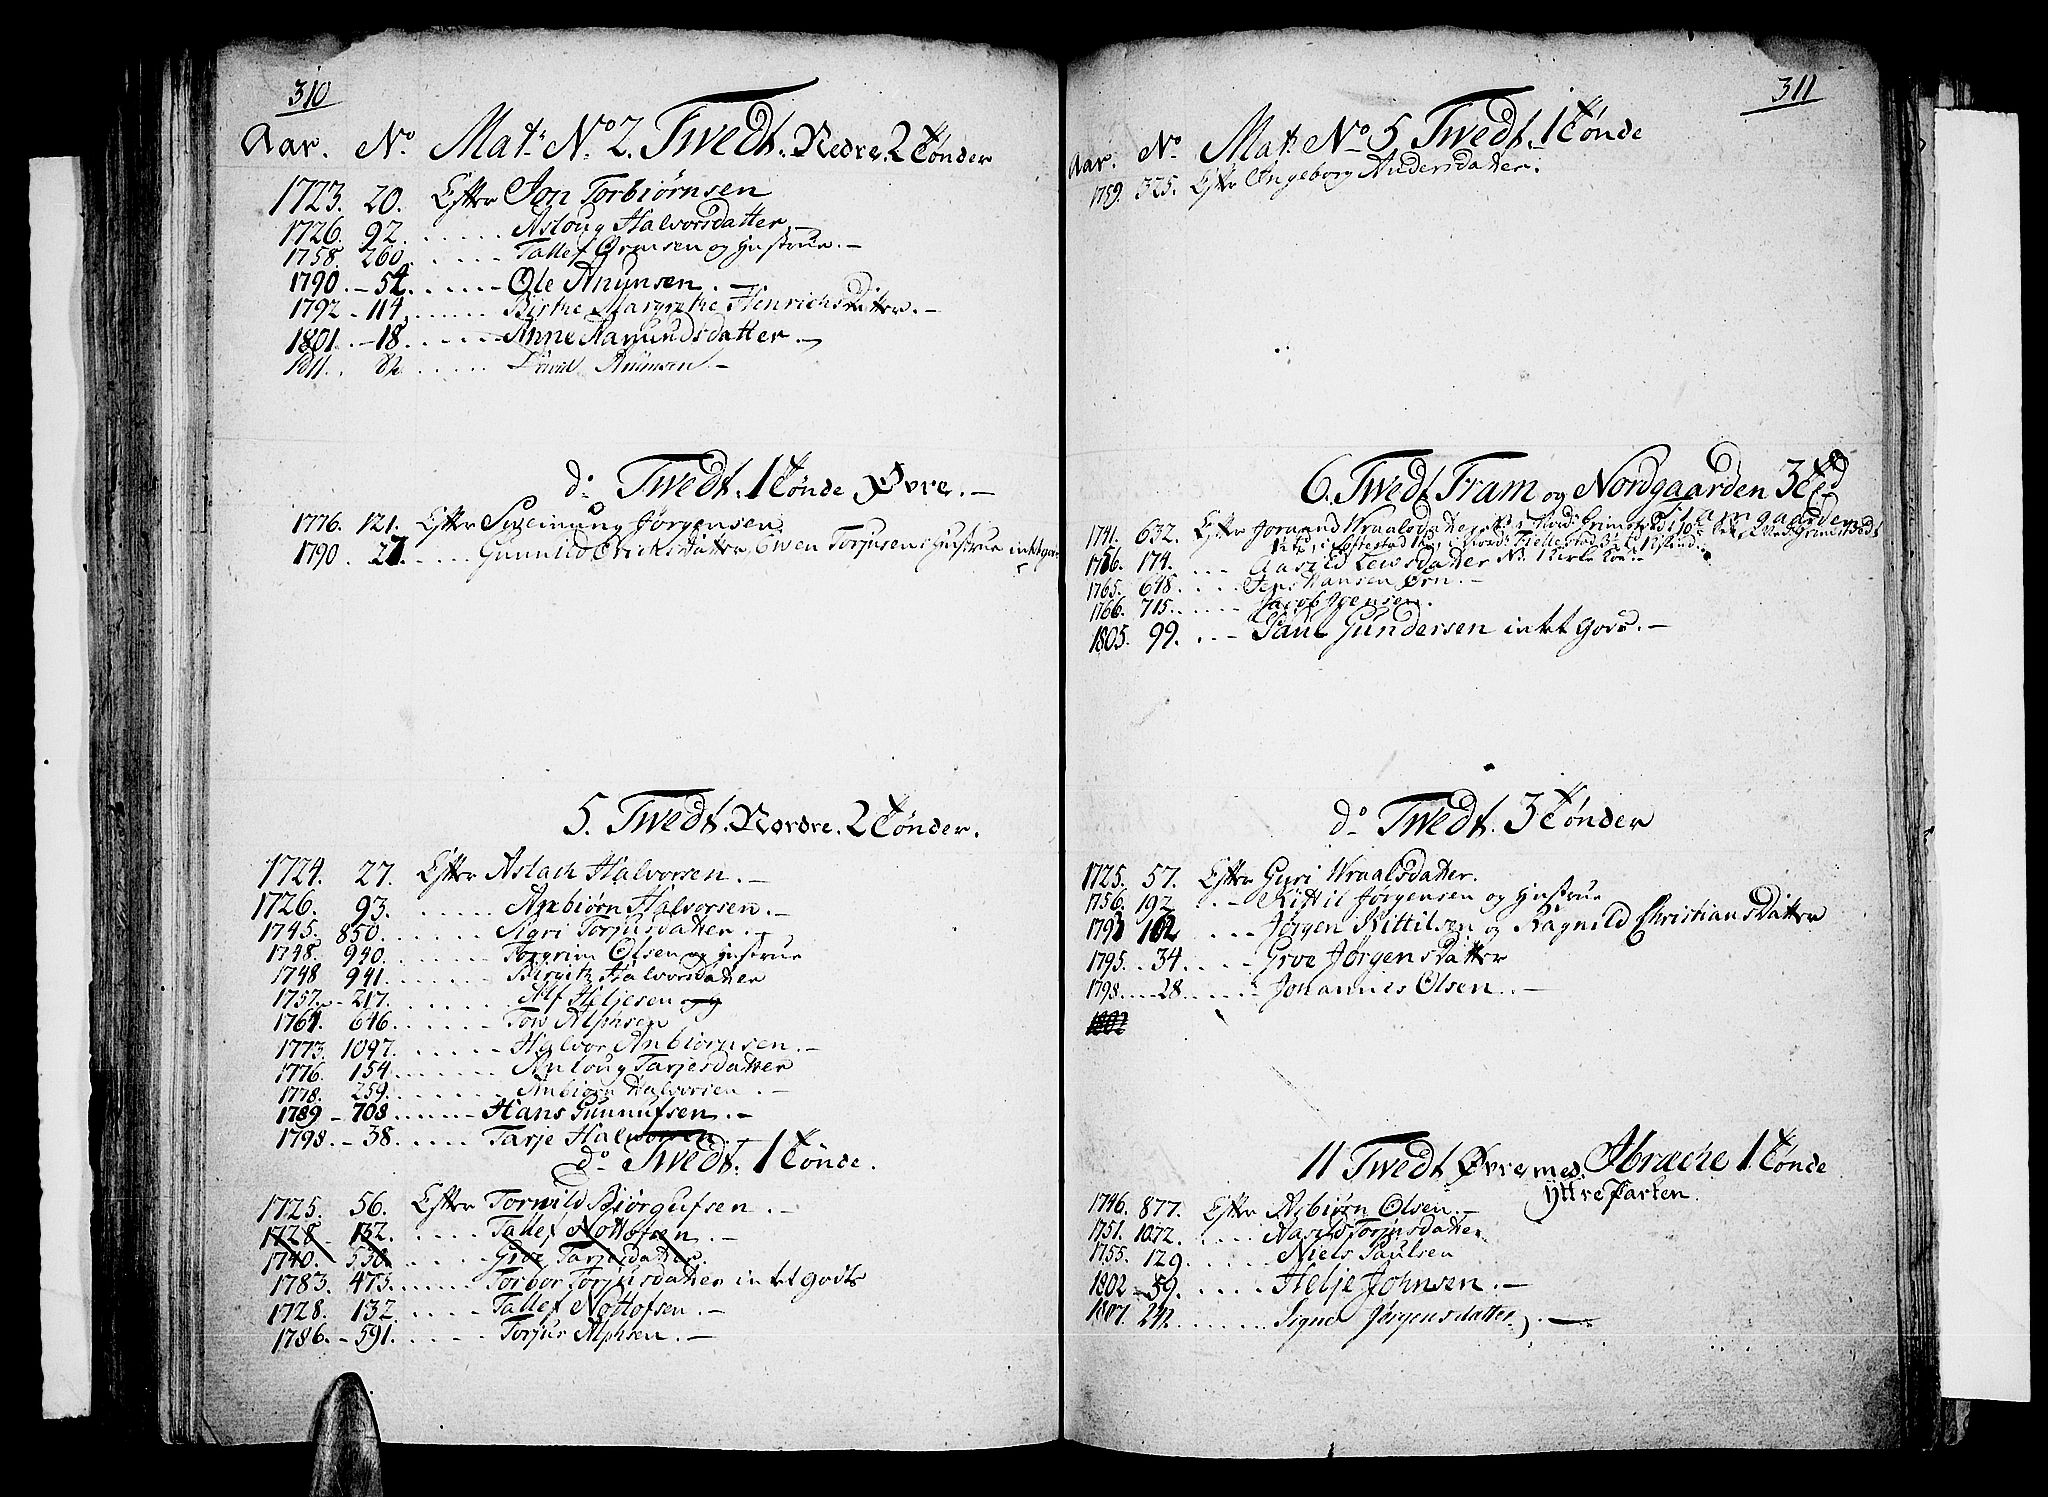 310
Aar. No. Mat. No. 2. Twedt. Nedre. 2 Tønder
1723. 20. Efter Jon Torbiørnsen
1726. 92. ..... Asloug Halvorsdatter
1758. 260. ..... Tallef Ormsen og Hustrue. —
1790. — 54. ..... Ole Anunsen. —
1792 - 114. ..... Birthe Margrethe Henrichsdatter. —
1801. — 18. ..... Anne Aamundsdatter. —
1811. 82. ..... Anunsen —
do Twedt. 1 Tønde Øvre. —
1776. 121. Efter Sveinung Jørgensen
1790. 27. .... Gunnild Erichsdatter, Ewen Torjusens Hustrue intet
5. Twedt. Nordre. 2 Tønder.
1724. 27. Efter Aslach Halvorsen. —
1726. 93. ..... Anbiørn Halvorsen. —
1745. 850. ..... Sigri Torjusdatter. —
1748. 940. ..... Torgrim Olsen og Hustrue
1748 941. ..... Birgithe Halvorsdatter
1757. - 217. ..... Alf Heljesen og
1764. 646. ..... Tow Alphsen
1773. 1097. ..... Halvor Anbiørnsen. —
1776. 154 ..... Anloug Tarjesdatter
1778. 259. ..... Anbiørn Halvorsen. —
1789 - 708 ..... Hans Gunnufsen. —
1798. - 38. ..... Tarje Halvorsen. —
do Twedt. 1 Tønde.
1725. 56. Efter Tornild Biørgufsen. —
1728 - 132. .... Tallef Nottofsen. —
1740. 530 .... Groe Tarjesdatter.
1783. 475. .... Torbor Torjusdatter intet godts
1728. 132 ..... Tallef Nottofsen. —
1786. - 591. ..... Torjus Alphsen. —
311
Aar. No. Mat. No 5 Twedt. 1 Tønde
1759. 325. Efter Ingeborg Andersdatter.
6. Twedt Fram og Nordgaarden 3 Td
1741. 632. Efter Joraand Wraalsdatter
1756. 174. ... Aasild Lewsdatter
1765. 648. .... Jens Hansen Ørn. —
1766. 715. ..... Jacob Joensen.
1805. 99. .. — Paul Gundersen intet Gods. —
do Twedt. 3 Tønder
1725. 57. Efter Guri Wraalsdatter.
1756. 192 .. - Kittil Jørgensen og Hustrue
1793 102 ... - Jørgen Kittilsen og Ragnild Christiansdatter
1795. . 34. ... - Groe Jørgensdatter
1798. ... 28 ..... Johannes Olsen. —
1802
11 Twedt Øvre med Abrache 1 Tønde
Yttre Parten.
1746. 877. Efter Asbiørn Olsen. —
1751. 1072. ..... Aasild Torjusdatter
1755. 129. ..... Niels Paulsen
1802 - 59. ..... Helje Johnsen. —
1807. 242. ..... Signe Jørgensdatter. —